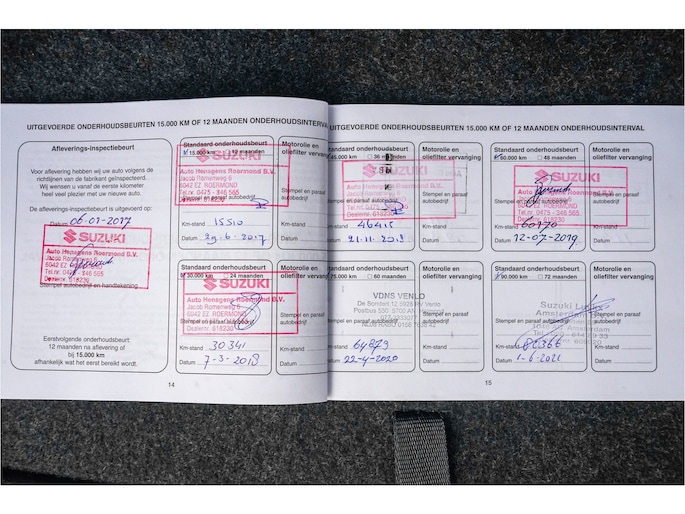 UITGEVOERDE ONDERHOUDSBEURTEN 15.000 KM OF 12 MAANDEN ONDERHOUDSINTERVAL
Afleverings-inspectiebeurt
Voor aflevering hebben wij uw auto volgens de
richtlijnen van de fabrikant geïnspecteerd.
Wij wensen u vanaf de eerste kilometer
heel veel plezier met uw nieuwe auto.
De afleverings-inspectiebeurt is uitgevoerd op:
Datum 06-01-2017
SUZUKI
Auto Hensgens Roermond B.V.
Jacob Romenweg 6
6042 EZ ROERMOND
Tel.nr. 0475 - 346 565
Dealernr. 618230
Stempel autobedrijf en handtekening
Eerstvolgende onderhoudsbeurt:
12 maanden na aflevering of
bij 15.000 km
afhankelijk wat het eerst bereikt wordt.
Standaard onderhoudsbeurt
15.000 km 12 maanden
SUZUKI
Auto Hensgens Roermond B.V.
Jacob Romenweg 6
6042 EZ ROERMOND
Tel.nr. 0475 - 346 565
Dealernr. 618230
Km-stand 15510
Datum 29-6-2017
Motorolie en
oliefilter vervanging
Stempel en paraaf
autobedrijf
Km-stand
Datum
Standaard onderhoudsbeurt
30.000 km 24 maanden
SUZUKI
Auto Hensgens Roermond B.V.
Jacob Romenweg 6
6042 EZ. ROERMOND
Stempel en paraaf
autobedrijf
Dealernr. 618230
Km-stand 30341
Datum 7-3-2018
Motorolie en
oliefilter vervanging
Stempel en paraaf
autobedrijf
Km-stand
Datum
14
UITGEVOERDE ONDERHOUDSBEURTEN 15.000 KM OF 12 MAANDEN ONDERHOUDSINTERVAL
45.000 km 36 maanden
SUZUKI
Auto Hensgens Roermond B.V.
46415
21-11-2018
Motorolie en
oliefilter vervanging
Stempel en paraaf
autobedrijf
Km-stand
Datum
Standaard onderhoudsbeurt
60.000 km 48 maanden
SUZUKI
Auto Hensgens Roermond B.V.
Jacob Romenweg 6
6042 EZ ROERMOND
Tel.nr. 0475 - 346 565
Dealernr. 618230
Km-stand 60170
Datum 12-07-2019
Motorolie en
oliefilter vervanging
Stempel en paraaf
autobedrijf
Km-stand
Datum
75.000 km 60 maanden
VDNS VENLO
64879
22-4-2020
Motorolie en
oliefilter vervanging
Km-stand
Datum
Standaard onderhoudsbeurt
90.000 km 72 maanden
Suzuki
Amsterdam
Km-stand 82366
Datum 1-6-2021
Motorolie en
oliefilter vervanging
Stempel en paraaf
autobedrijf
Km-stand
Datum
15